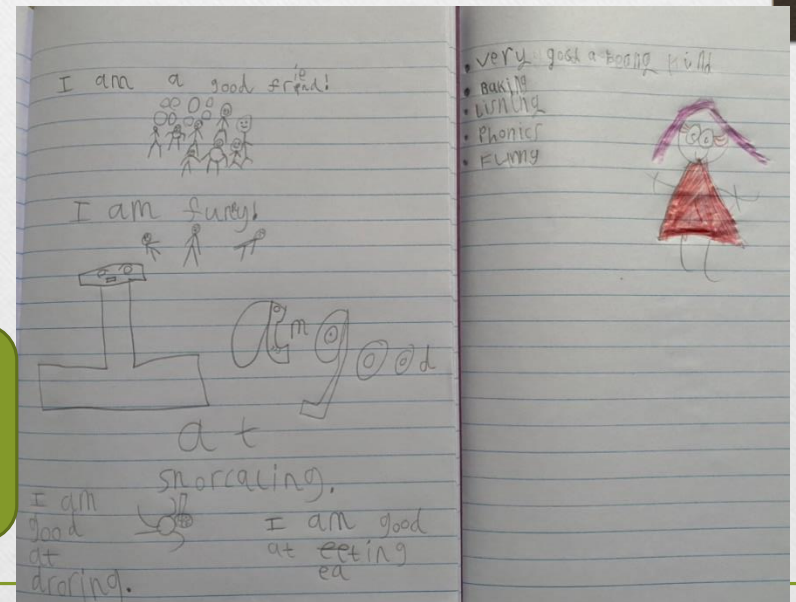 I am a good friend!
I am funey!
I am good
at
snorcaling.
I am
good
at
droring.
I am good
at eeting
ea
• very good a
• Baking
• Lisning
• Phonics
• Funny